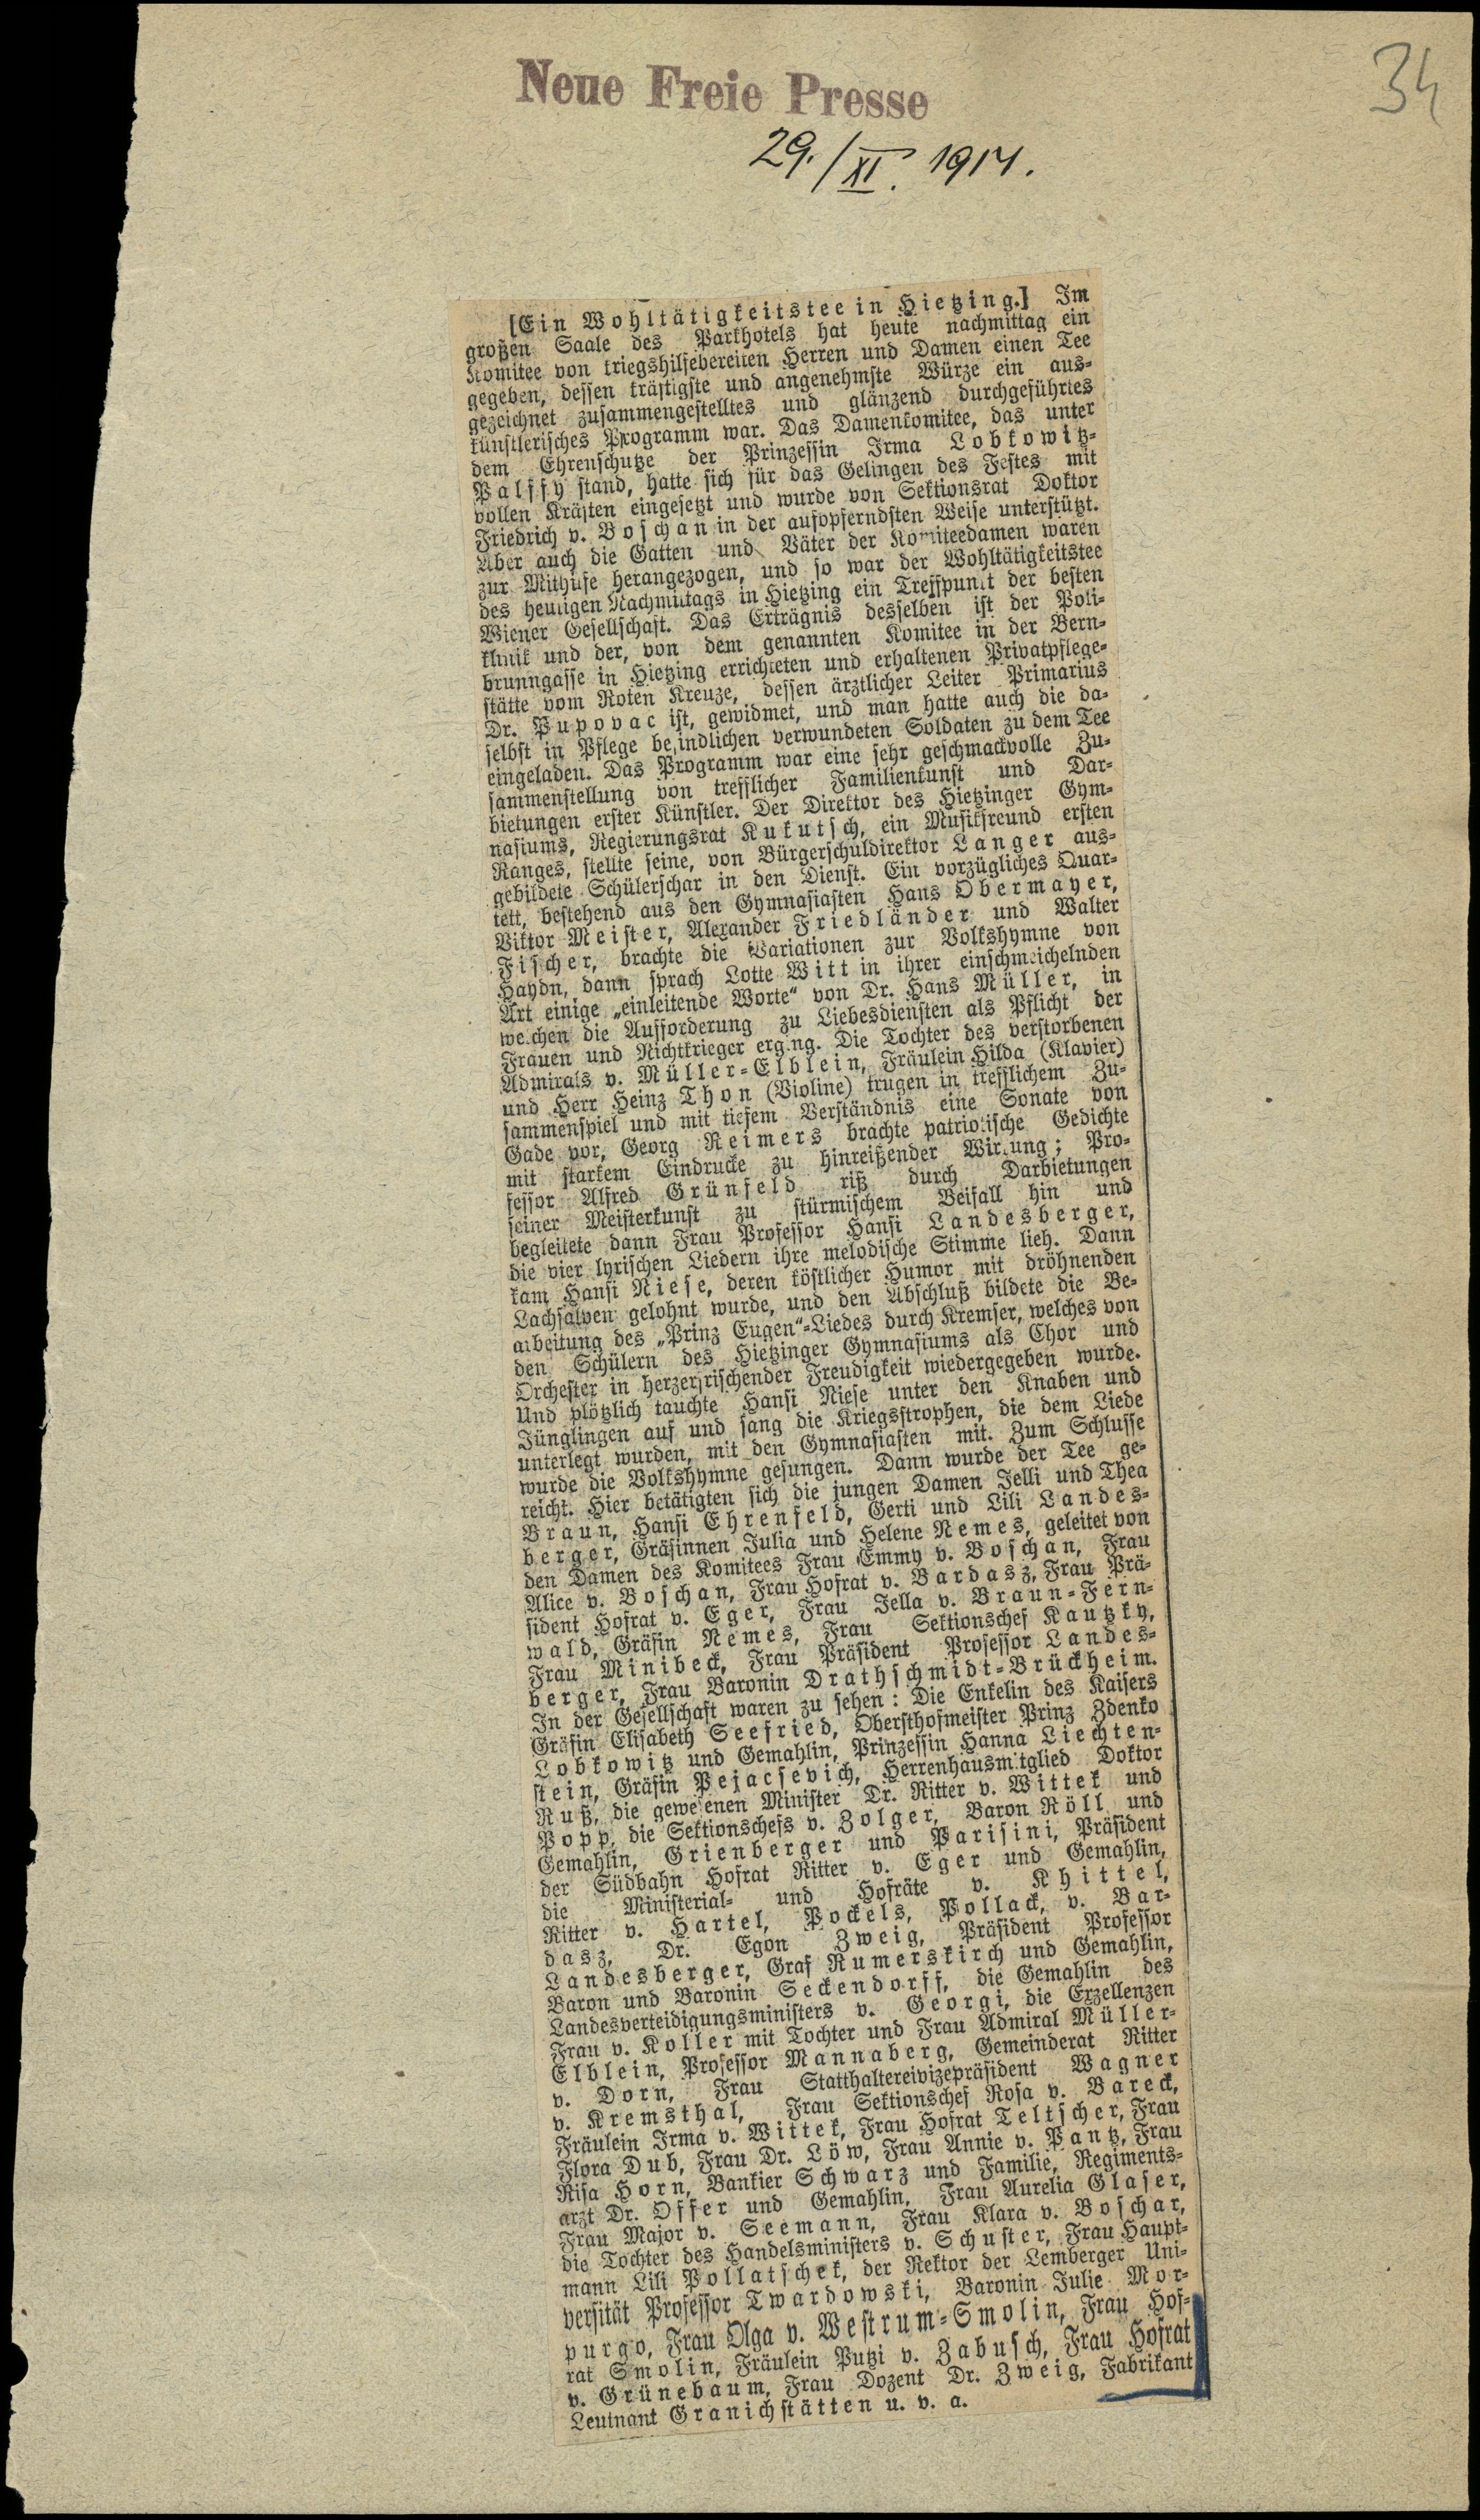 Neue Freie Presse
34
29./XI. 1914.
[Ein Wohltätigkeitstee in Hietzing.] Im
großen Saale des Parkhotels hat heute nachmittag ein
Komitee von kriegshilfebereiten Herren und Damen einen Tee
gegeben, dessen kräftigste und angenehmste Würze ein aus-
gezeichnet zusammengestelltes und glänzend durchgeführtes
künstlerisches Programm war. Das Damenkomitee, das unter
dem Ehrenschutze der Prinzessin Irma Lobkowitz-
Palffy stand, hatte sich für das Gelingen des Festes mit
vollen Kräften eingesetzt und wurde von Sektionsrat Doktor
Friedrich v. Boschan in der aufopferndsten Weise unterstützt.
Aber auch die Gatten und Väter der Komiteedamen waren
zur Mithilfe herangezogen, und so war der Wohltätigkeitstee
des heutigen Nachmittags in Hietzing ein Treffpunkt der besten
Wiener Gesellschaft. Das Erträgnis desselben ist der Poli-
klinik und der, von dem genannten Komitee in der Bern-
brunngasse in Hietzing errichteten und erhaltenen Privatpflege-
stätte vom Roten Kreuze, dessen ärztlicher Leiter Primarius
Dr. Pupovac ist, gewidmet, und man hatte auch die da-
selbst in Pflege befindlichen verwundeten Soldaten zu dem Tee
eingeladen. Das Programm war eine sehr geschmackvolle Zu-
sammenstellung von trefflicher Familienkunst und Dar-
bietungen erster Künstler. Der Direktor des Hietzinger Gym-
nasiums, Regierungsrat Kukutsch, ein Musikfreund ersten
Ranges, stellte seine, von Bürgerschuldirektor Langer aus-
gebildete Schülerschar in den Dienst. Ein vorzügliches Quar-
tett, bestehend aus den Gymnasiasten Hans Obermayer,
Viktor Meister, Alexander Friedländer und Walter
Fischer, brachte die Variationen zur Volkshymne von
Haydn, dann sprach Lotte Witt in ihrer einschmeichelnden
Art einige „einleitende Worte“ von Dr. Hans Müller, in
welchen die Aufforderung zu Liebesdiensten als Pflicht der
Frauen und Nichtkrieger erging. Die Tochter des verstorbenen
Admirals v. Müller-Elblein, Fräulein Hilda (Klavier)
und Herr Heinz Thon (Violine) trugen in trefflichem Zu-
sammenspiel und mit tiefem Verständnis eine Sonate von
Gade vor, Georg Reimers brachte patriotische Gedichte
mit starkem Eindrucke zu hinreißender Wirkung; Pro-
fessor Alfred Grünfeld riß durch Darbietungen
seiner Meisterkunst zu stürmischem Beifall hin und
begleitete dann Frau Professor Hansi Landesberger,
die vier lyrischen Liedern ihre melodische Stimme lieh. Dann
kam Hansi Niese, deren köstlicher Humor mit dröhnenden
Lachsalven gelohnt wurde, und den Abschluß bildete die Be-
arbeitung des „Prinz Eugen“-Liedes durch Kremser, welches von
den Schülern des Hietzinger Gymnasiums als Chor und
Orchester in herzerfrischender Freudigkeit wiedergegeben wurde.
Und plötzlich tauchte Hansi Niese unter den Knaben und
Jünglingen auf und sang die Kriegsstrophen, die dem Liede
unterlegt wurden, mit den Gymnasiasten mit. Zum Schlusse
wurde die Volkshymne gesungen. Dann wurde der Tee ge-
reicht. Hier betätigten sich die jungen Damen Jelli und Thea
Braun, Hansi Ehrenfeld, Gerti und Lili Landes-
berger, Gräfinnen Julia und Helene Nemes, geleitet von
den Damen des Komitees Frau Emmy v. Boschan, Frau
Alice v. Boschan, Frau Hofrat v. Bardasz, Frau Prä-
sident Hofrat v. Eger, Frau Jella v. Braun-Fern-
wald, Gräfin Nemes, Frau Sektionschef Kautzky,
Frau Minibeck, Frau Präsident Professor Landes-
berger, Frau Baronin Drathschmidt-Brückheim.
In der Gesellschaft waren zu sehen: Die Enkelin des Kaisers
Gräfin Elisabeth Seefried, Obersthofmeister Prinz Zdenko
Lobkowitz und Gemahlin, Prinzessin Hanna Liechten-
stein, Gräfin Pejacsevich, Herrenhausmitglied Doktor
Ruß, die gewesenen Minister Dr. Ritter v. Wittek und
Popp, die Sektionschefs v. Zolger, Baron Röll und
Gemahlin, Grienberger und Parisini, Präsident
der Südbahn Hofrat Ritter v. Eger und Gemahlin,
die Ministerial- und Hofräte v. Khittel,
Ritter v. Hartel, Pockels, Pollack, v. Bar-
dasz, Dr. Egon Zweig, Präsident Professor
Landesberger, Graf Rumerskirch und Gemahlin,
Baron und Baronin Seckendorff, die Gemahlin des
Landesverteidigungsministers v. Georgi, die Exzellenzen
Frau v. Koller mit Tochter und Frau Admiral Müller-
Elblein, Professor Mannaberg, Gemeinderat Ritter
v. Dorn, Frau Statthaltereivizepräsident Wagner
v. Kremsthal, Frau Sektionschef Rosa v. Bareck,
Fräulein Irma v. Wittek, Frau Hofrat Teltscher, Frau
Flora Dub, Frau Dr. Löw, Frau Annie v. Pantz, Frau
Risa Horn, Bankier Schwarz und Familie, Regiments-
arzt Dr. Offer und Gemahlin, Frau Aurelia Glaser,
Frau Major v. Seemann, Frau Klara v. Boschar,
die Tochter des Handelsministers v. Schuster, Frau Haupt-
mann Lili Pollatschek, der Rektor der Lemberger Uni-
versität Professor Twardowski, Baronin Julie Mor-
purgo, Frau Olga v. Westrum-Smolin, Frau Hof-
rat Smolin, Fräulein Putzi v. Zabusch, Frau Hofrat
v. Grünebaum, Frau Dozent Dr. Zweig, Fabrikant
Leutnant Granichstätten u. v. a.